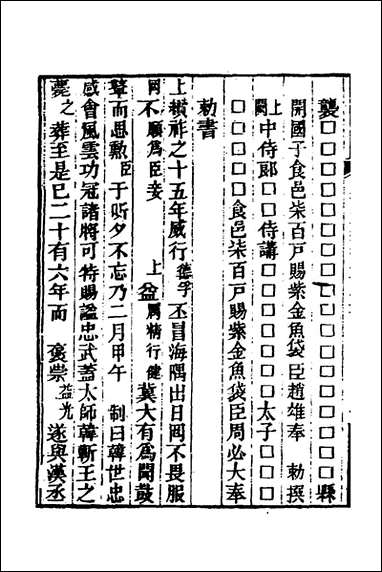 襲□□□□□□□□□□□□□□□□縣
開國子食邑柒百戶賜紫金魚袋臣趙雄奉 勅撰
上闕中侍郎□□侍講□□□□□□太子□□□
□□□□□食邑柒百戶賜紫金魚袋臣周必大奉
勅書
上纘祚之十五年威行德孚丕冒海隅出日罔不畏服
罔不願為臣妾 上益厲精行健冀大有為聞鼓
鼙而思勲臣于昕夕不忘乃二月甲午 制曰韓世忠
感會風雲功冠諸將可特賜諡忠武蓋太師韓蘄王之
薨之葬至是已二十有六年而 褒崇益光遂與漢丞